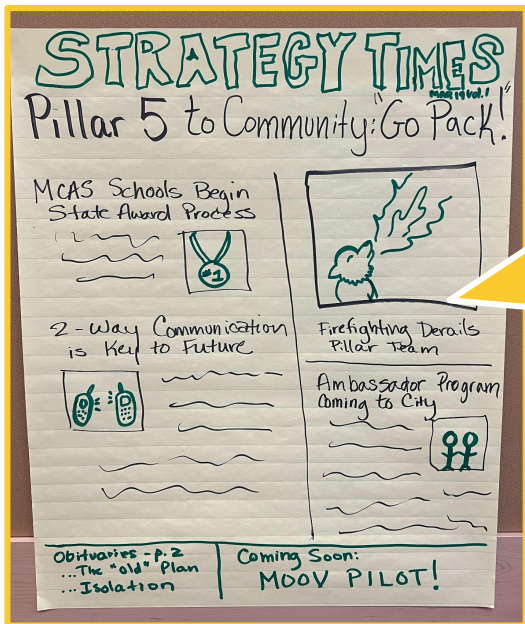 STRATEGY TIMES
MAR 19 Vol. 1
Pillar 5 to Community: "Go Pack!"
MCAS Schools Begin
State Award Process
#1
2-Way Communication
is Key to Future
Firefighting Derails
Pillar Team
Ambassador Program
Coming to City
Obituaries - p. 2
... The "old" Plan
... Isolation
Coming Soon:
MOOV PILOT!